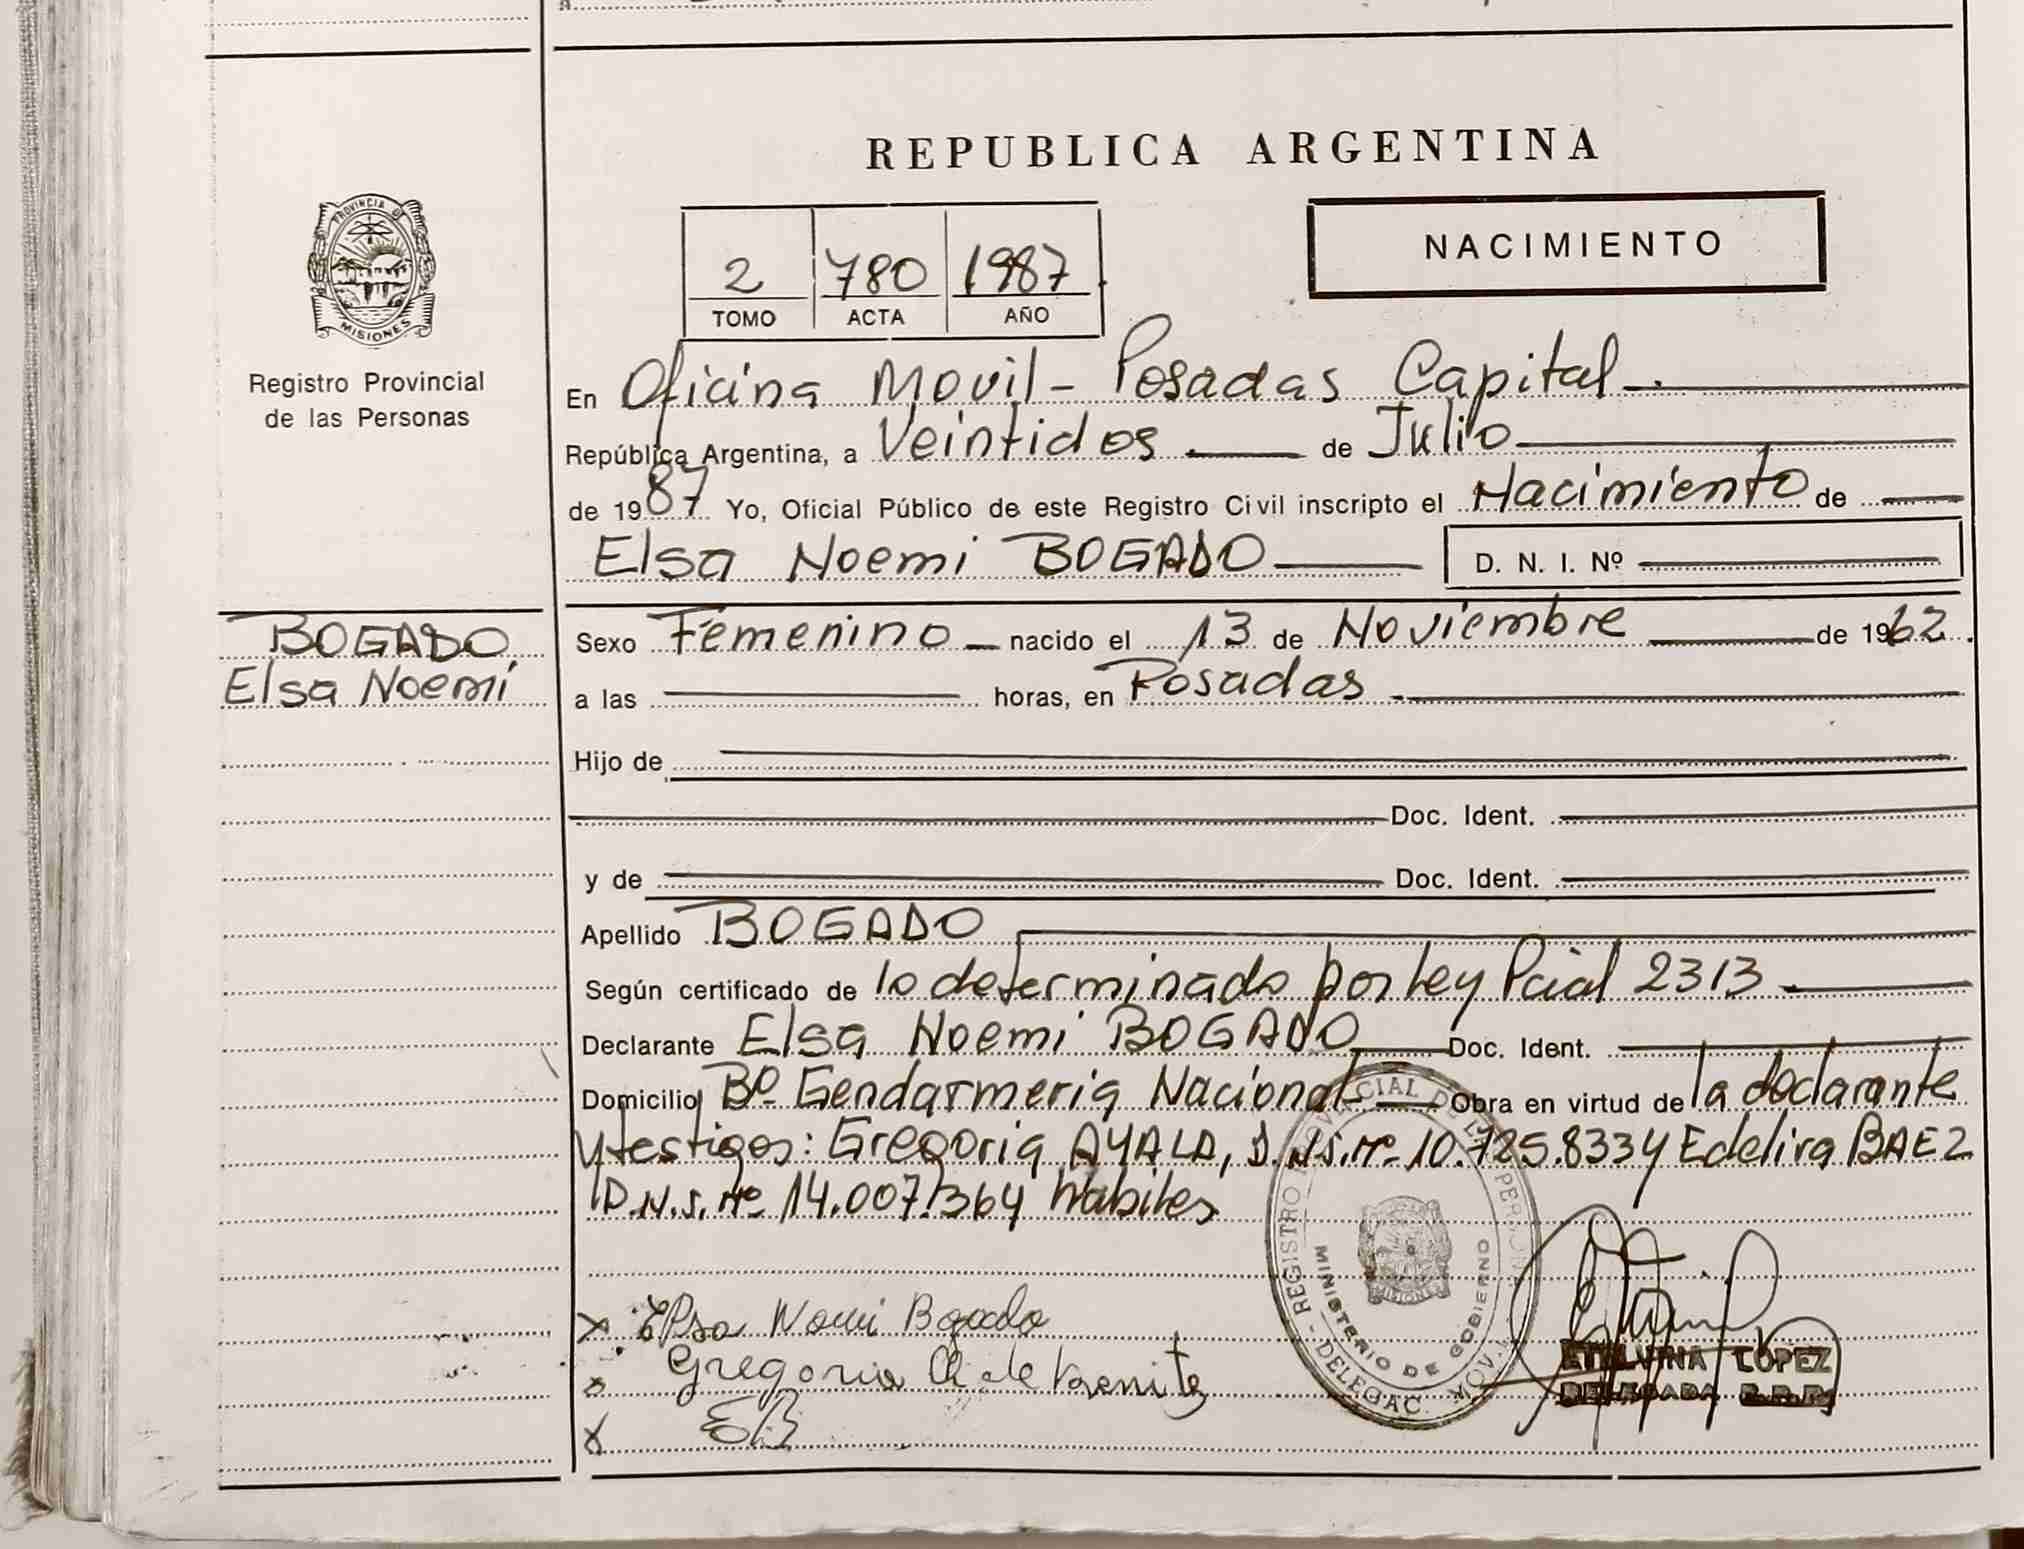 REPUBLICA ARGENTINA
PROVINCIA DE
MISIONES
Registro Provincial
de las Personas
2 780 1987
TOMO ACTA AÑO
NACIMIENTO
En Oficina Movil - Posadas Capital
República Argentina, a Veintidos de Julio
de 1987 Yo, Oficial Público de este Registro Civil inscripto el Nacimiento de
Elsa Noemi BOGADO D. N. I. Nº
BOGADO,
Elsa Noemí
Sexo Femenino nacido el 13 de Noviembre de 1962.
a las horas, en Posadas
Hijo de
Doc. Ident.
y de Doc. Ident.
Apellido BOGADO
Según certificado de lo determinado por Ley Pcial 2313
Declarante Elsa Noemi BOGADO Doc. Ident.
Domicilio Bº Gendarmeria Nacional Obra en virtud de la declarante
y testigos: Gregoria AYALA, D.N.I. Nº 10.725.833 y Edelira BAEZ
D.N.I. Nº 14.007.364 habiles
REGISTRO PROVINCIAL DE LAS PERSONAS - DELEGAC. MOV.
MINISTERIO DE GOBIERNO
MISIONES
x Elsa Noemi Bogado
x Gregoria A de Benitez
x EB
ETELVINA LOPEZ
DELEGADA R.P.P.